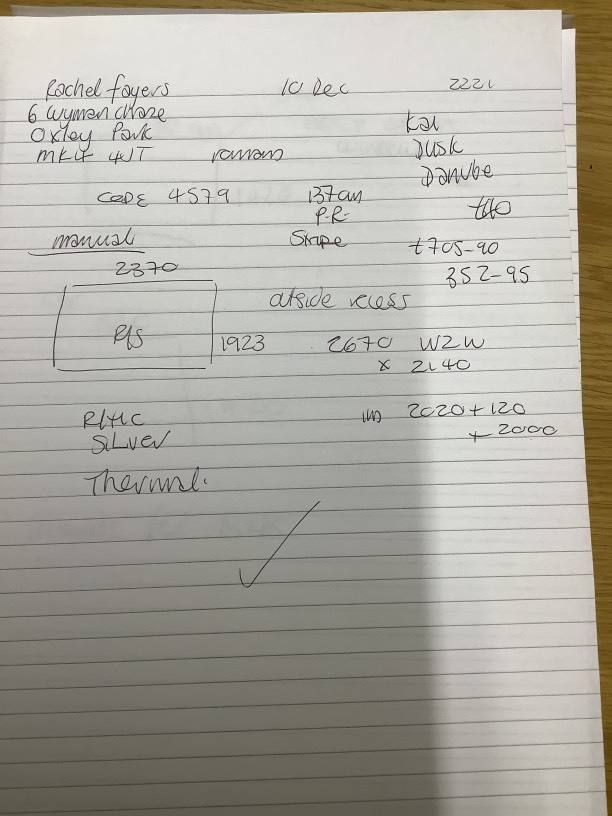 Rachel Fayers 10 Dec 2221
6 Wyman chase
Oxley Park
MK4 4JT romans
Kai
Dusk
Danube
CODE 4579 137cm
P.R.
Stripe
manual
2370
£705-90
352-95
outside recess
R/S
1923 2670 W2W
x 2140
R/H/C
Silver
2020 + 120
+ 2000
Thermal.